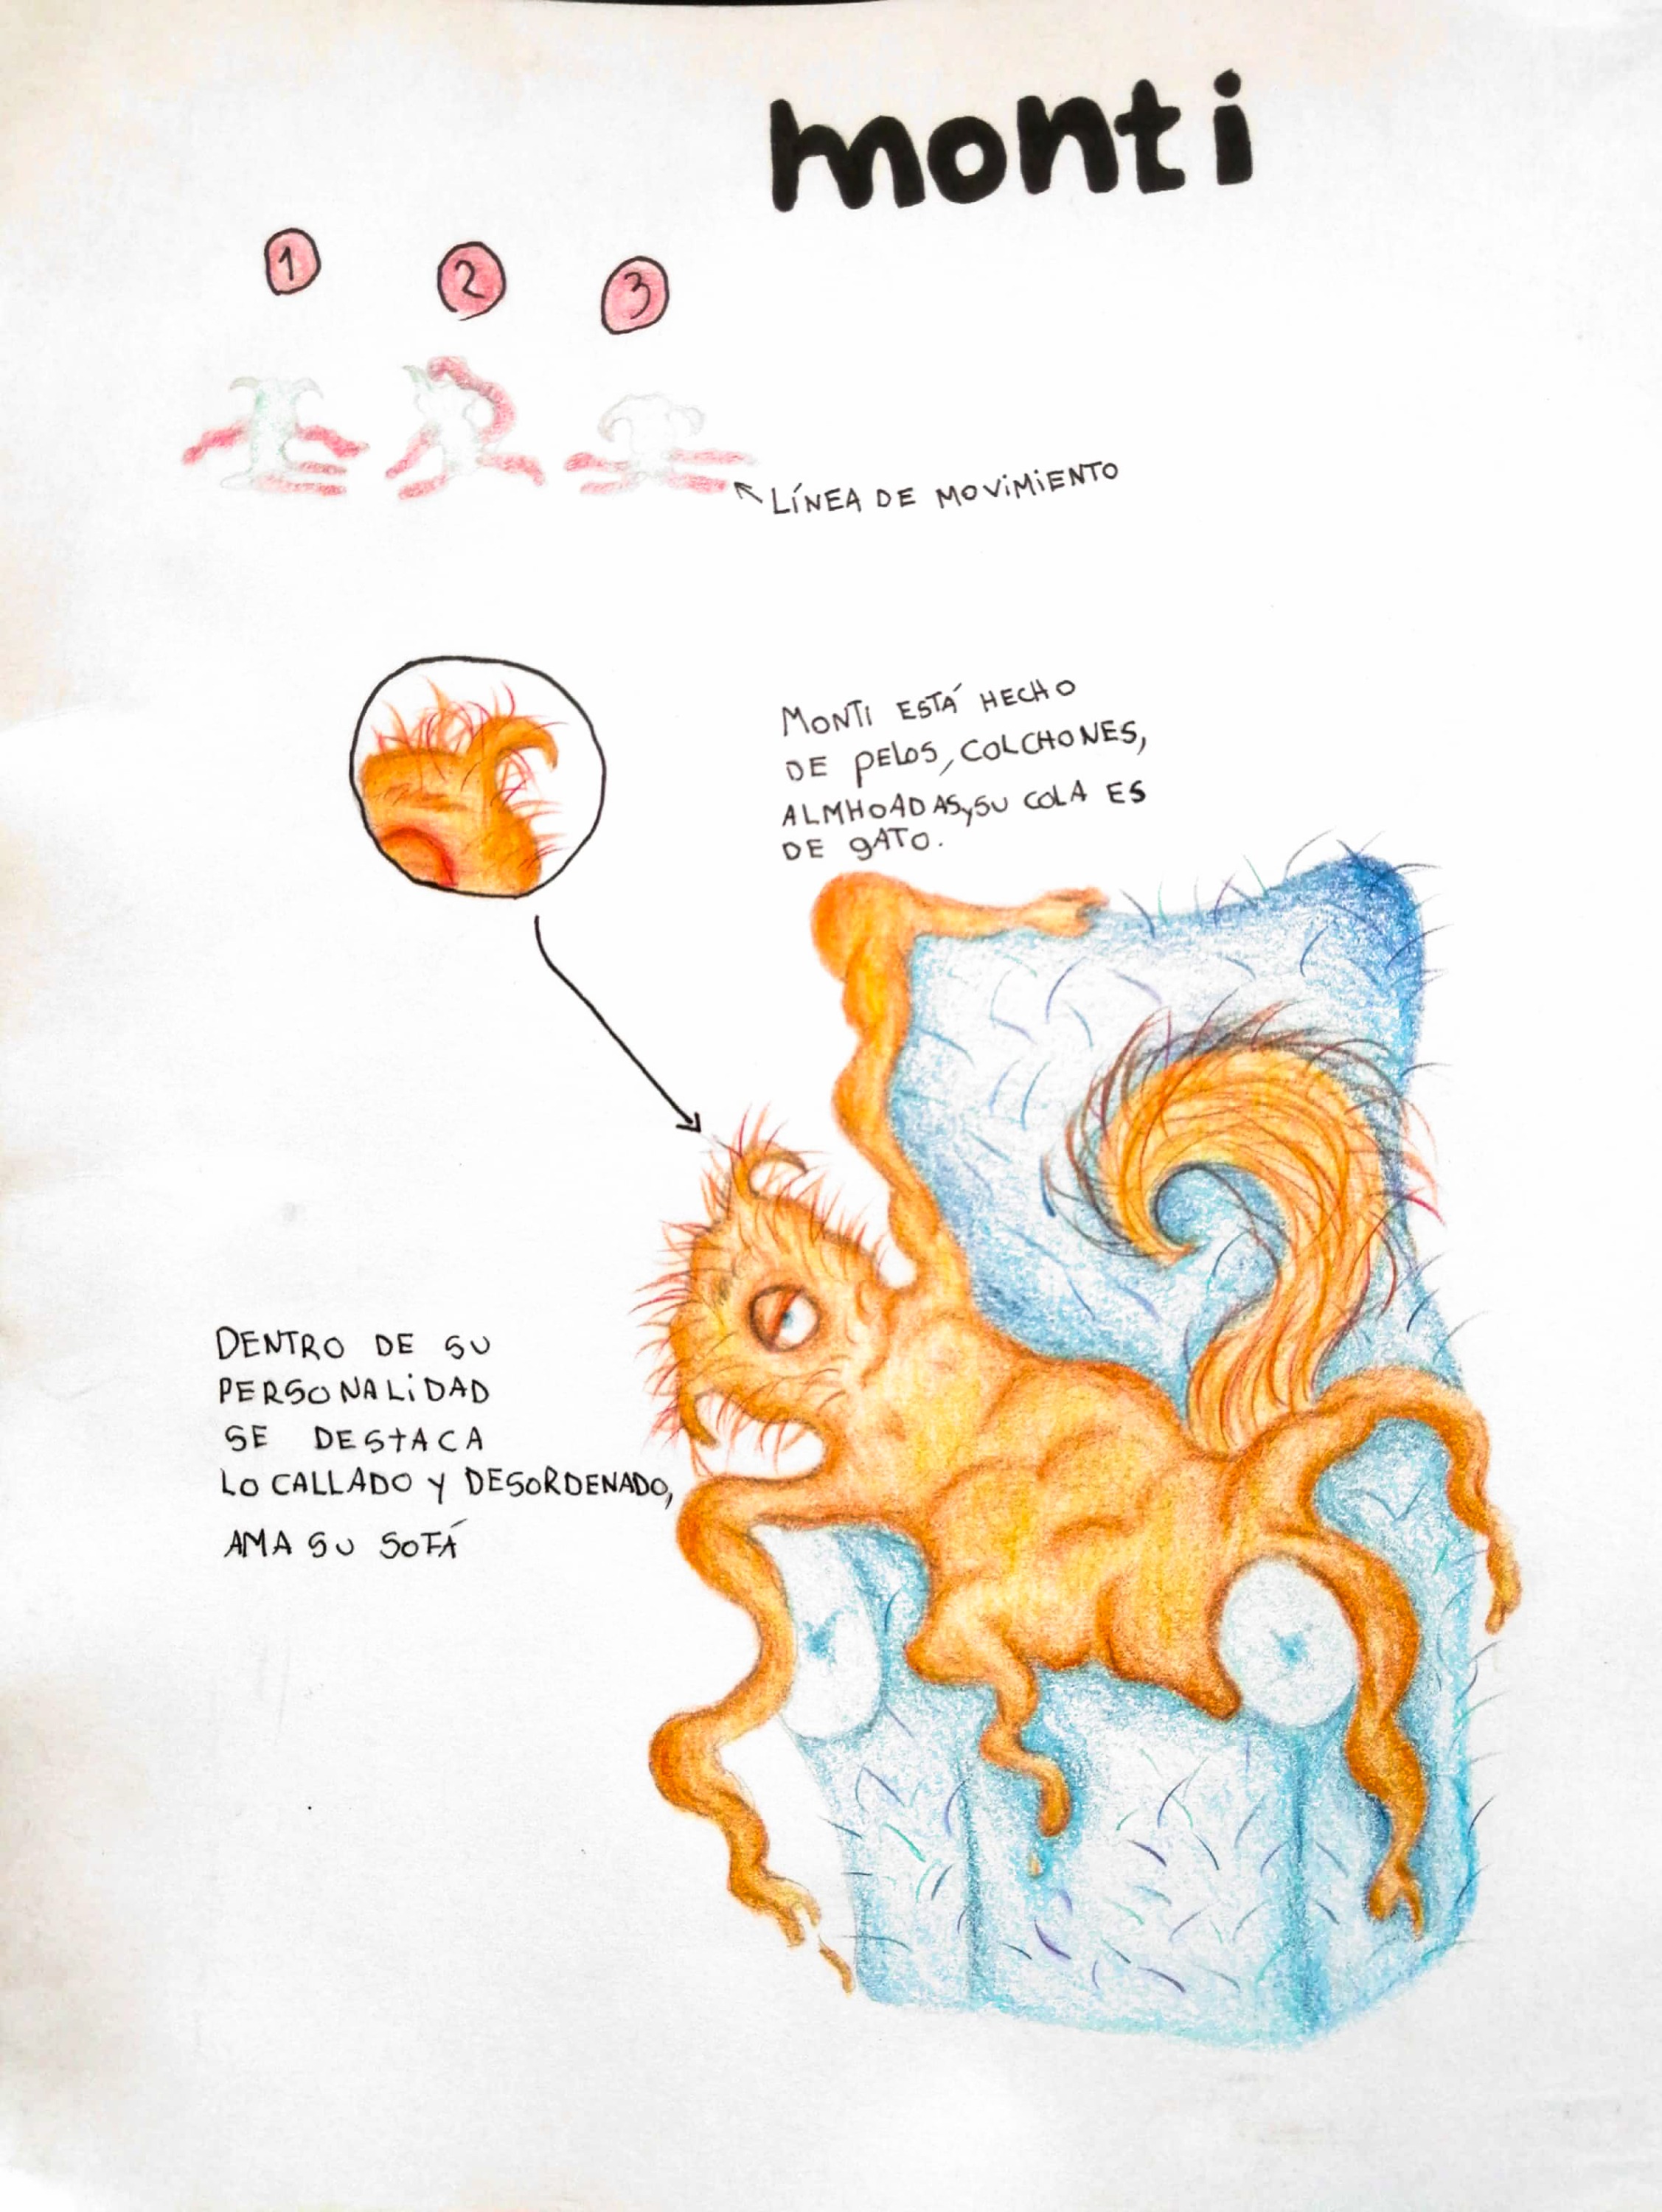 monti
1 2 3
LÍNEA DE MOVIMIENTO
MONTI ESTÁ HECHO
DE PELOS, COLCHONES,
ALMHOADAS y SU COLA ES
DE GATO.
DENTRO DE SU
PERSONALIDAD
SE DESTACA
LO CALLADO Y DESORDENADO,
AMA SU SOFÁ